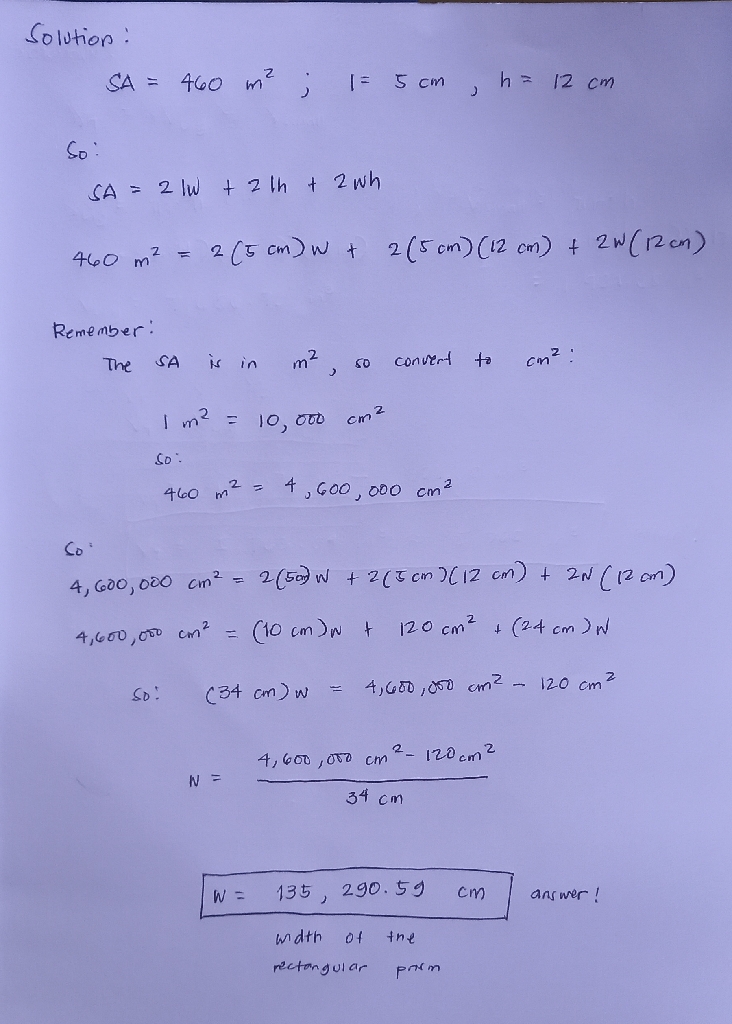 Solution :
SA = 460 m² ; l = 5 cm , h = 12 cm
So :
SA = 2 lw + 2 lh + 2 wh
460 m² = 2 (5 cm) w + 2 (5 cm) (12 cm) + 2w (12 cm)
Remember :
The SA is in m² , so convert to cm² :
1 m² = 10,000 cm²
So :
460 m² = 4,600,000 cm²
So :
4,600,000 cm² = 2 (5cm) w + 2 (5 cm) (12 cm) + 2w (12 cm)
4,600,000 cm² = (10 cm) w + 120 cm² + (24 cm) w
So : (34 cm) w = 4,600,000 cm² - 120 cm²
4,600,000 cm² - 120 cm²
w =
34 cm
w = 135, 290.59 cm answer !
width of the
rectangular prism